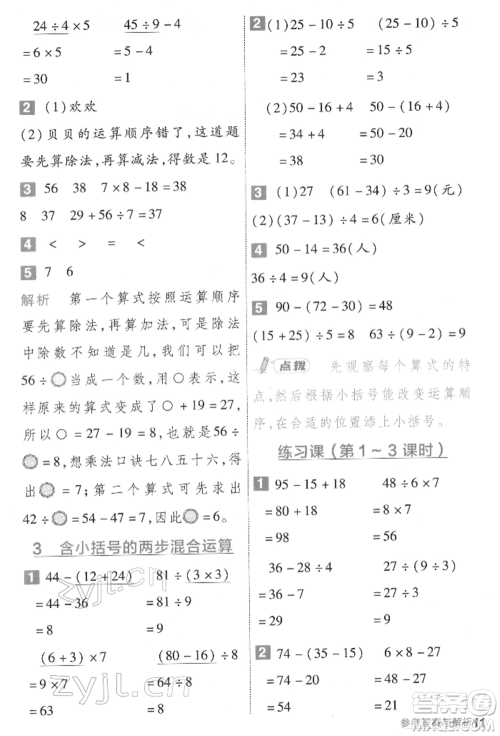 24÷4×5　45÷9-4
=6×5　=5-4
=30　=1
2 (1)欢欢
(2)贝贝的运算顺序错了,这道题
要先算除法,再算减法,得数是12。
3 56 38 7×8-18=38
8 37 29+56÷7=37
4 < > = >
5 7 6
解析 第一个算式按照运算顺序
要先算除法,再算加法,可以把除
法中除数不知道的算式,我们可以把
56÷ 当成一个数用○来代替,
这样原来的算式变成了○+27=
35,所以○=35-27=8,即56÷
=8,想乘法口诀七八五十六,得
出 =7;第二个算式可先求出
42÷ =57-50=7,因此 =6。
3 含小括号的两步混合运算
1 44-(12+24)　81÷(3×3)
=44-36　=81÷9
=8　=9
(6+3)×7　(80-16)÷8
=9×7　=64÷8
=63　=8
2 (1)25+(10-5)　(25-10)÷5
=25+5　=15÷5
=30　=3
(2)50-16+4　50-(16+4)
=34+4　=50-20
=38　=30
3 (1)27　(61-34)÷3=9(元)
(2)(17+19)÷4=9(厘米)
4 50-14=36(人)
36÷4=9(人)
5 90-(72-30)=48
(15+25)÷5=8　54÷(14-5)=6
点拨 先观察每个算式的特
点,然后根据小括号能改变运算顺
序,在合适的位置添上小括号。
练习课(第1~3课时)
1 95-15+18　48÷6×7
=80+18　=8×7
=98　=56
36-28÷4　27÷(12-9)
=36-7　=27÷3
=29　=9
2 74-(35-15)　6×8-27
=74-20　=48-27
=54　=21
参考答案与解析 11
zyjl.cn
答案圈